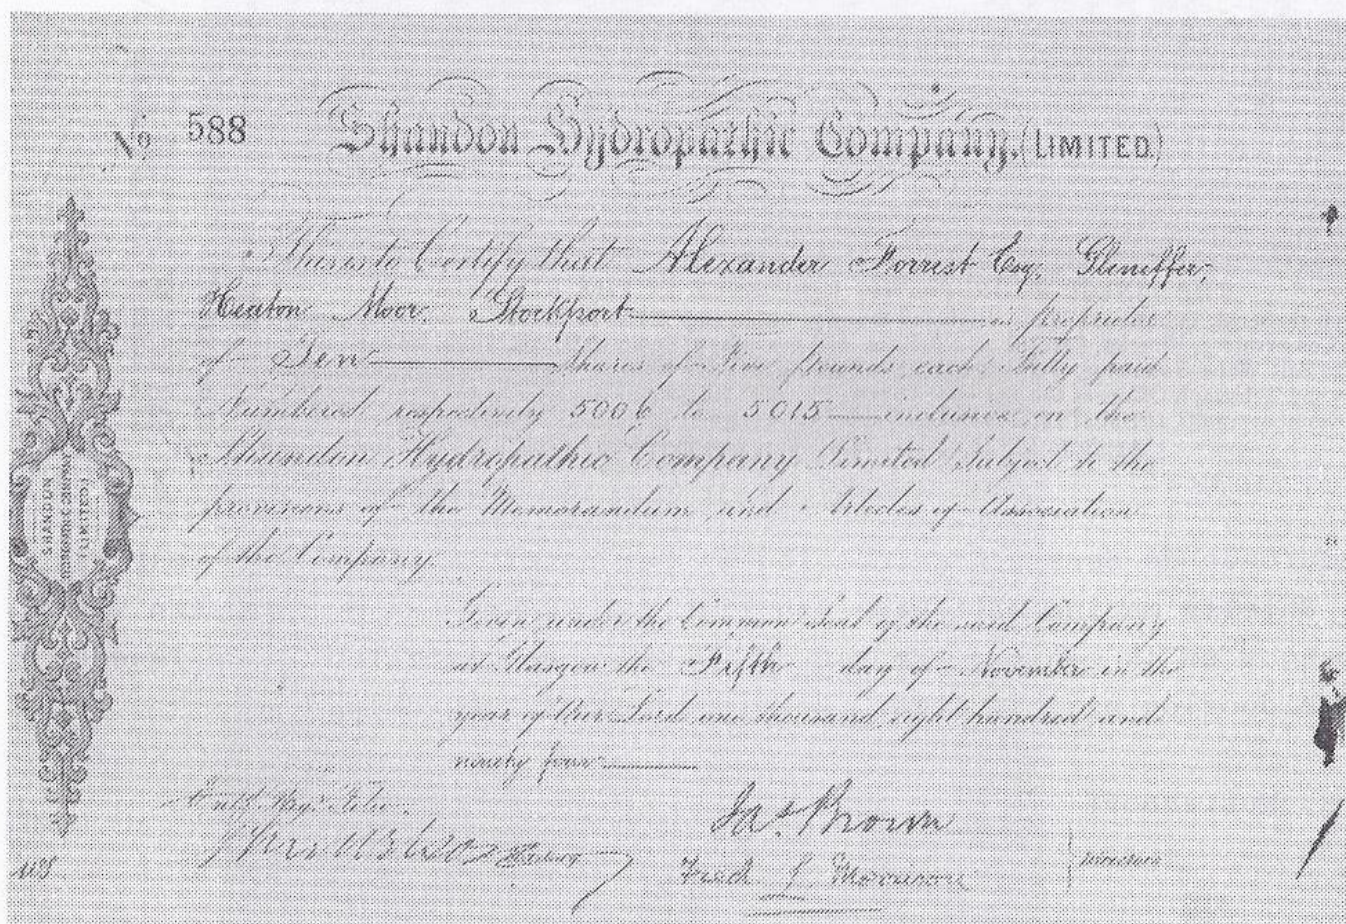 No 588 Shandon Hydropathic Company. (LIMITED.)
This is to Certify that Alexander Forrest Esq. Gleniffer,
Heaton Moor. Stockport is proprietor
of Ten Shares of Five pounds each Fully paid
Numbered respectively 5006 to 5015 inclusive in the
Shandon Hydropathic Company Limited Subject to the
provisions of the Memorandum and Articles of Association
of the Company.
Given under the Common Seal of the said Company
at Glasgow the Fifth day of November in the
year of Our Lord one thousand eight hundred and
ninety four
Jas. Brown
Fredk J. Morrison
Directors
SHANDON
HYDROPATHIC COMPANY
(LIMITED)